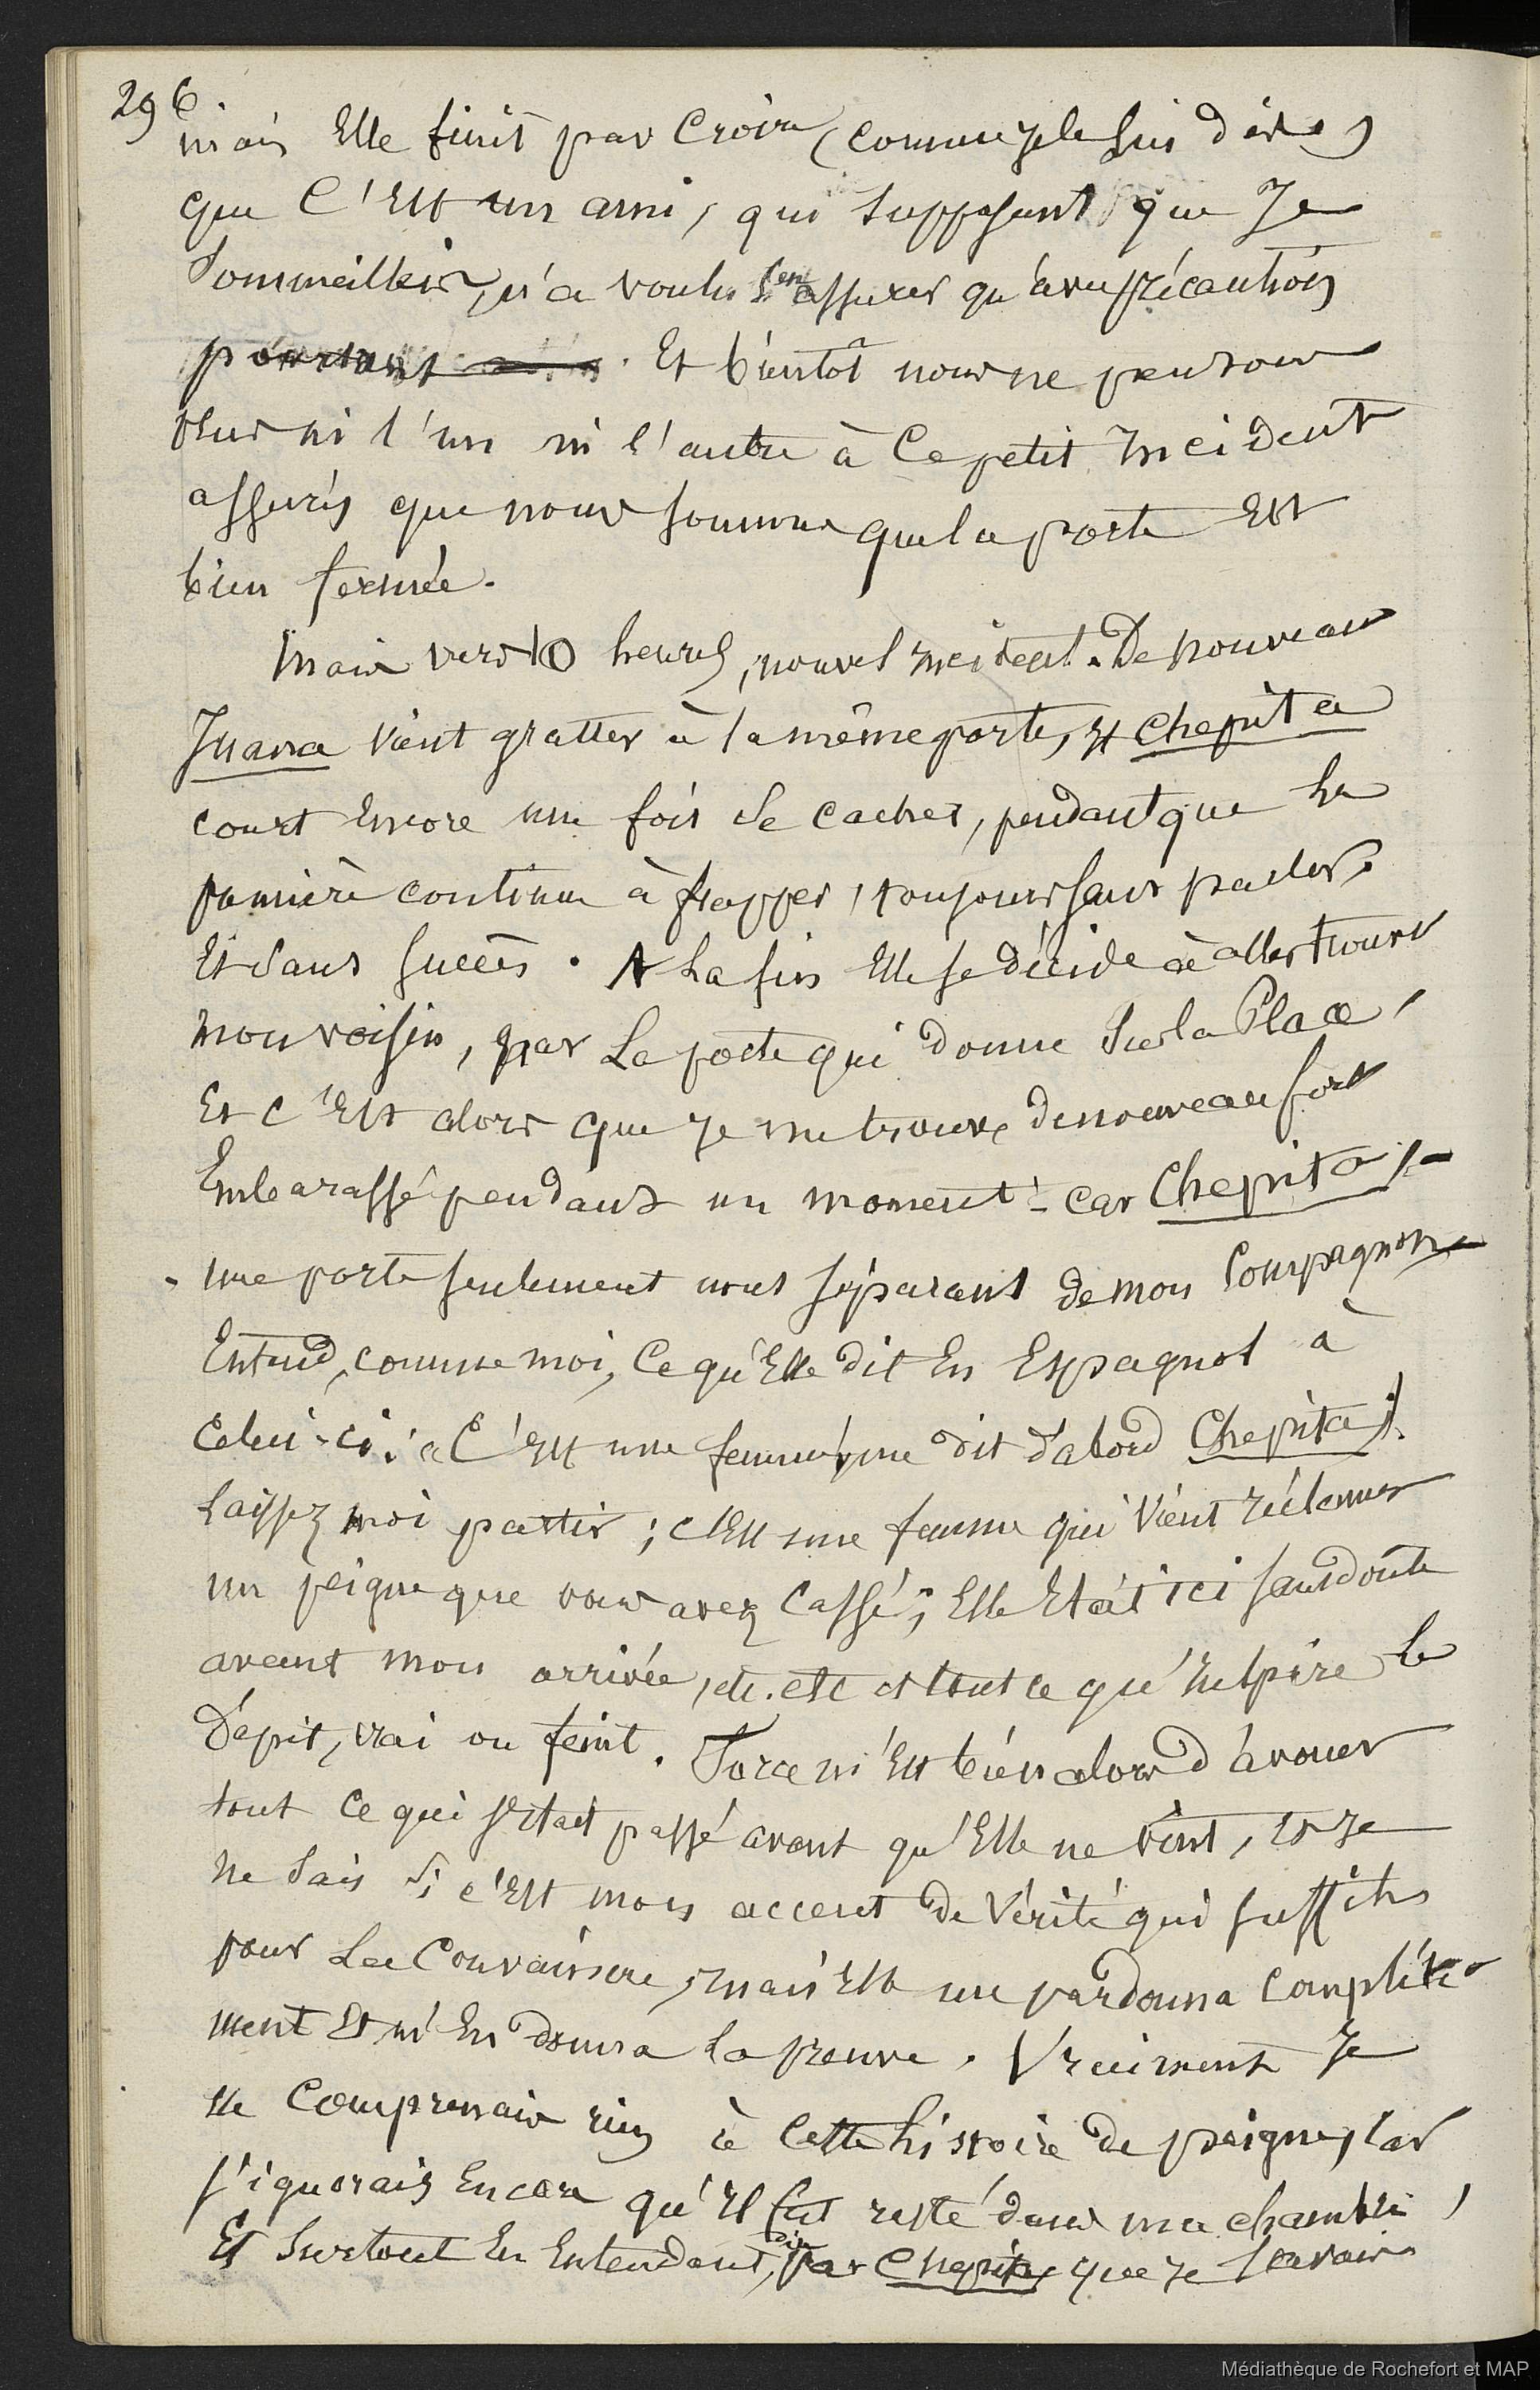 296.
mais Elle finit par Croire (comme je le lui dis)
que C'Est un ami, qui supposant que Je
Sommeillais, n'a voulu s'en assurer qu'avec précaution
pourtant. Et bientôt nous ne pensons
plus ni l'un ni l'autre à Ce petit Incident
assurés que nous sommes que la porte Est
bien fermée.
Mais vers 10 heures, nouvel incident. De nouveau
Juana vient gratter à la même porte, Et Chepita
court Encore une fois se cacher, pendant que la
première continue à frapper, toujours sans parler,
Et sans succès. A La fin Elle se décide à aller trouver
mon voisin, par La porte qui donne Sur la Place,
Et c'Est alors que Je me trouve de nouveau fort
Embarassé pendant un moment - car Chepita, -
- une porte seulement nous séparant de mon Compagnon -
Entend, comme moi, Ce qu'Elle dit En Espagnol à
Celui-ci: « C'Est une femme, me dit d'abord Chepita;
Laissez moi partir; c'Est une femme qui vient réclamer
un peigne que vous avez Cassé; Elle Etait ici sans doute
avant mon arrivée, etc. etc et tout ce qu'inspire le
Dépit, vrai ou feint. Force m'Est bien alors d'avouer
tout Ce qui s'Etait passé avant qu'Elle ne vint, Et Je
ne Sais Si c'Est mon accent de Vérité qui suffit
pour La Convaincre, mais Elle me pardonna Complète-
ment Et m'En donna La preuve. Vraiment Je
ne Comprenais rien à Cette histoire de peigne, Car
J'ignorais Encore qu'Il fut resté dans ma chambre,
Et Surtout En Entendant, dire par Chepita que Je l'avais
Médiathèque de Rochefort et MAP